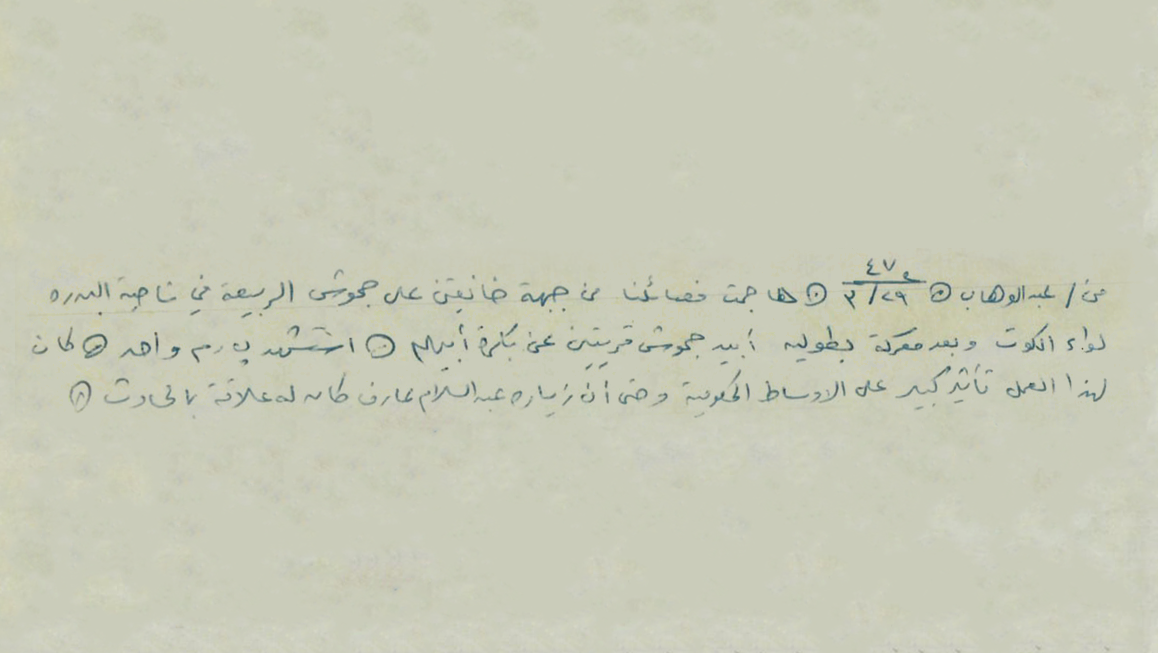 من / عبدالوهاب ⊙ ٤٧٤ ٢٩/٣ ⊙ هاجمت فصائلنا من جبهة خانقين على جحوش الربيعة في ناحية البدره
لواء الكوت وبعد معركة بطوليه أبيد جحوش قريتين عن بكرة أبيهم ⊙ استشهد پ.م واحد ⊙ كان
لهذا العمل تأثير كبير على الاوساط الحكومية وحتى أن زياره عبدالسلام عارف كان له علاقة بالحادث ⊙